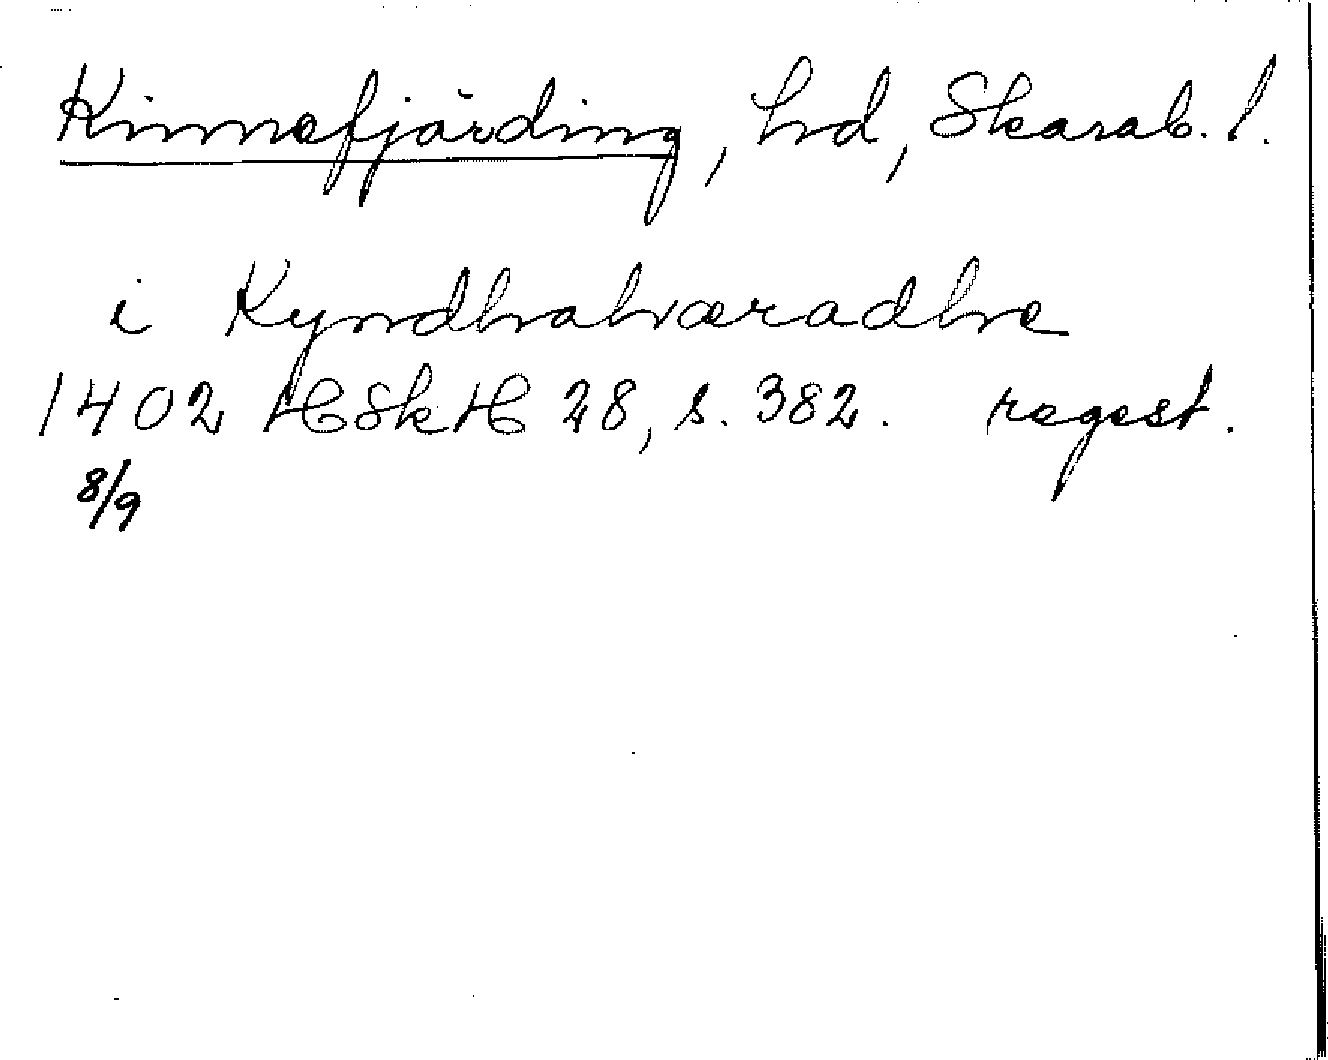 Kinnefjärding, hd, Skarab. l.
i Kyndhahæradhe
1402 HSkH 28, s. 382. regest.
8/9